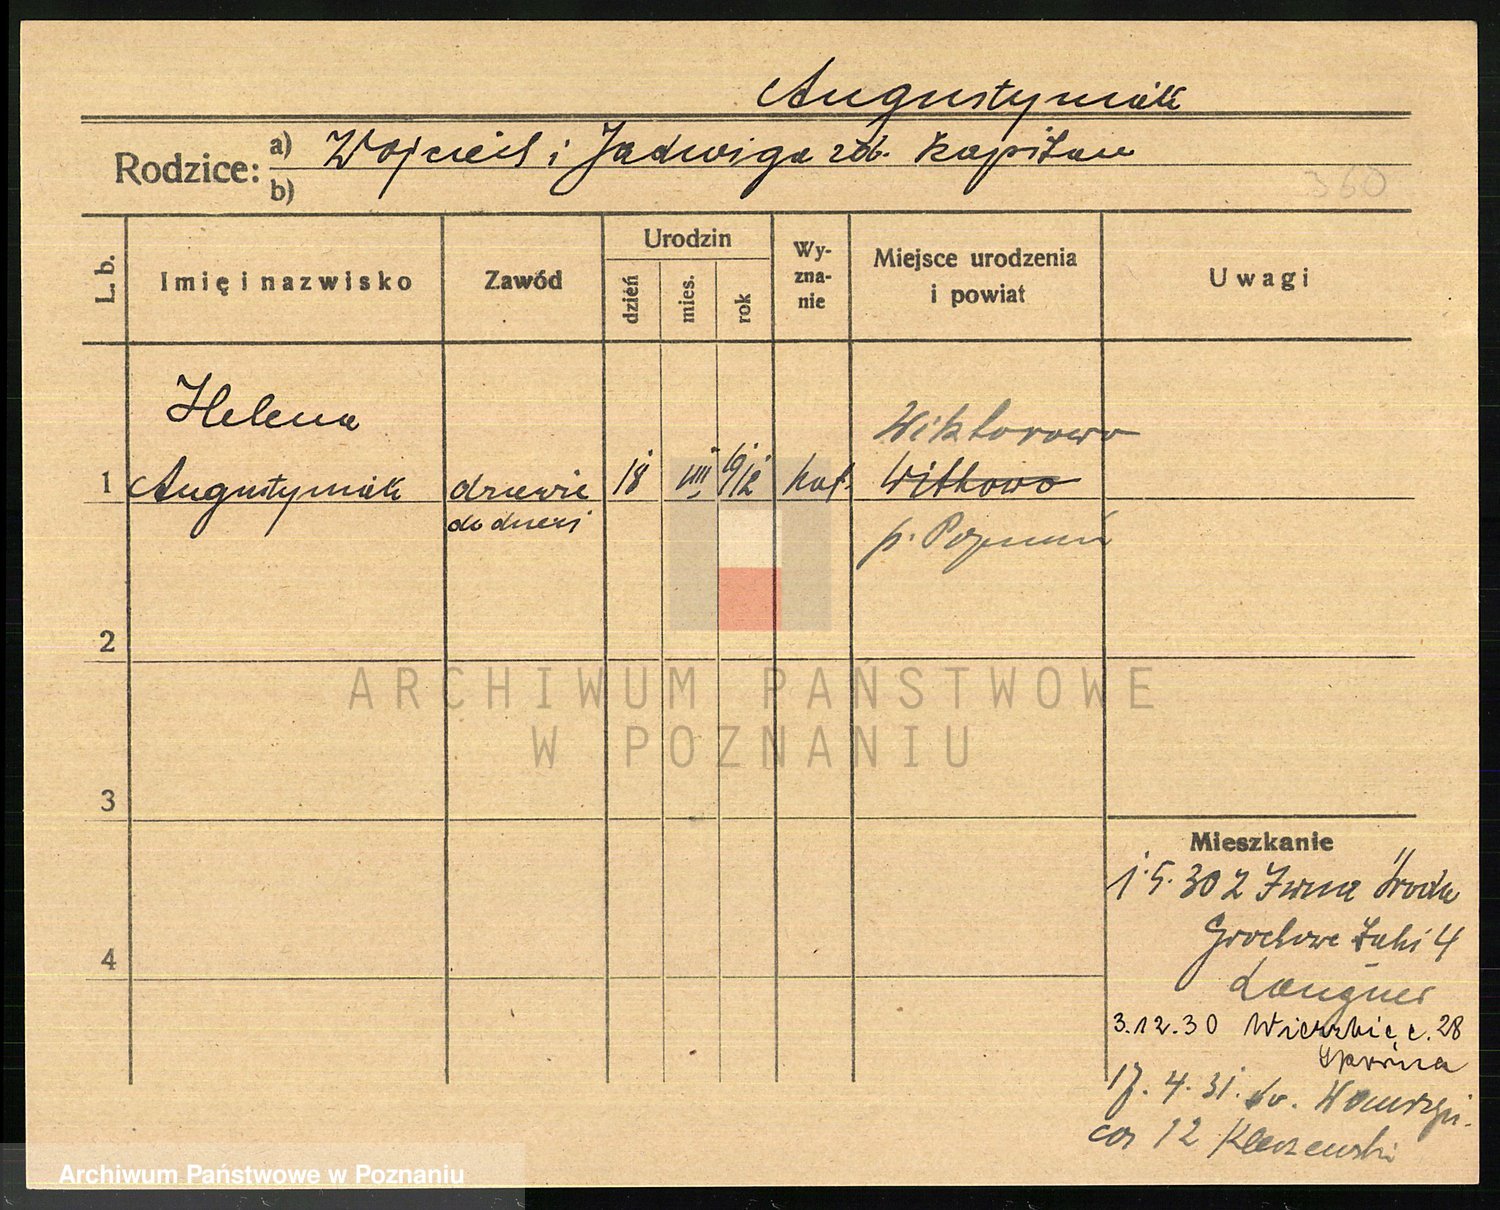 Augustyniak
Rodzice: a) Wojciech i Jadwiga zd. Kapitan
b)
360
L. b.
Imię i nazwisko
Zawód
Urodzin
dzień
mies.
rok
Wy-
zna-
nie
Miejsce urodzenia
i powiat
Uwagi
Helena
Wiktorowo
1 Augustyniak 18 VIII 1912 kat. Witkowo
do dzieci
p. Poznań
2
3
4
ARCHIWUM PAŃSTWOWE
W POZNANIU
Mieszkanie
1.5.30 z Środa
Grochowe Łąki 4
Langner
3.12.30 Wierzbięc. 28
17.4.31. św. Wawrzyń-
12
Archiwum Państwowe w Poznaniu